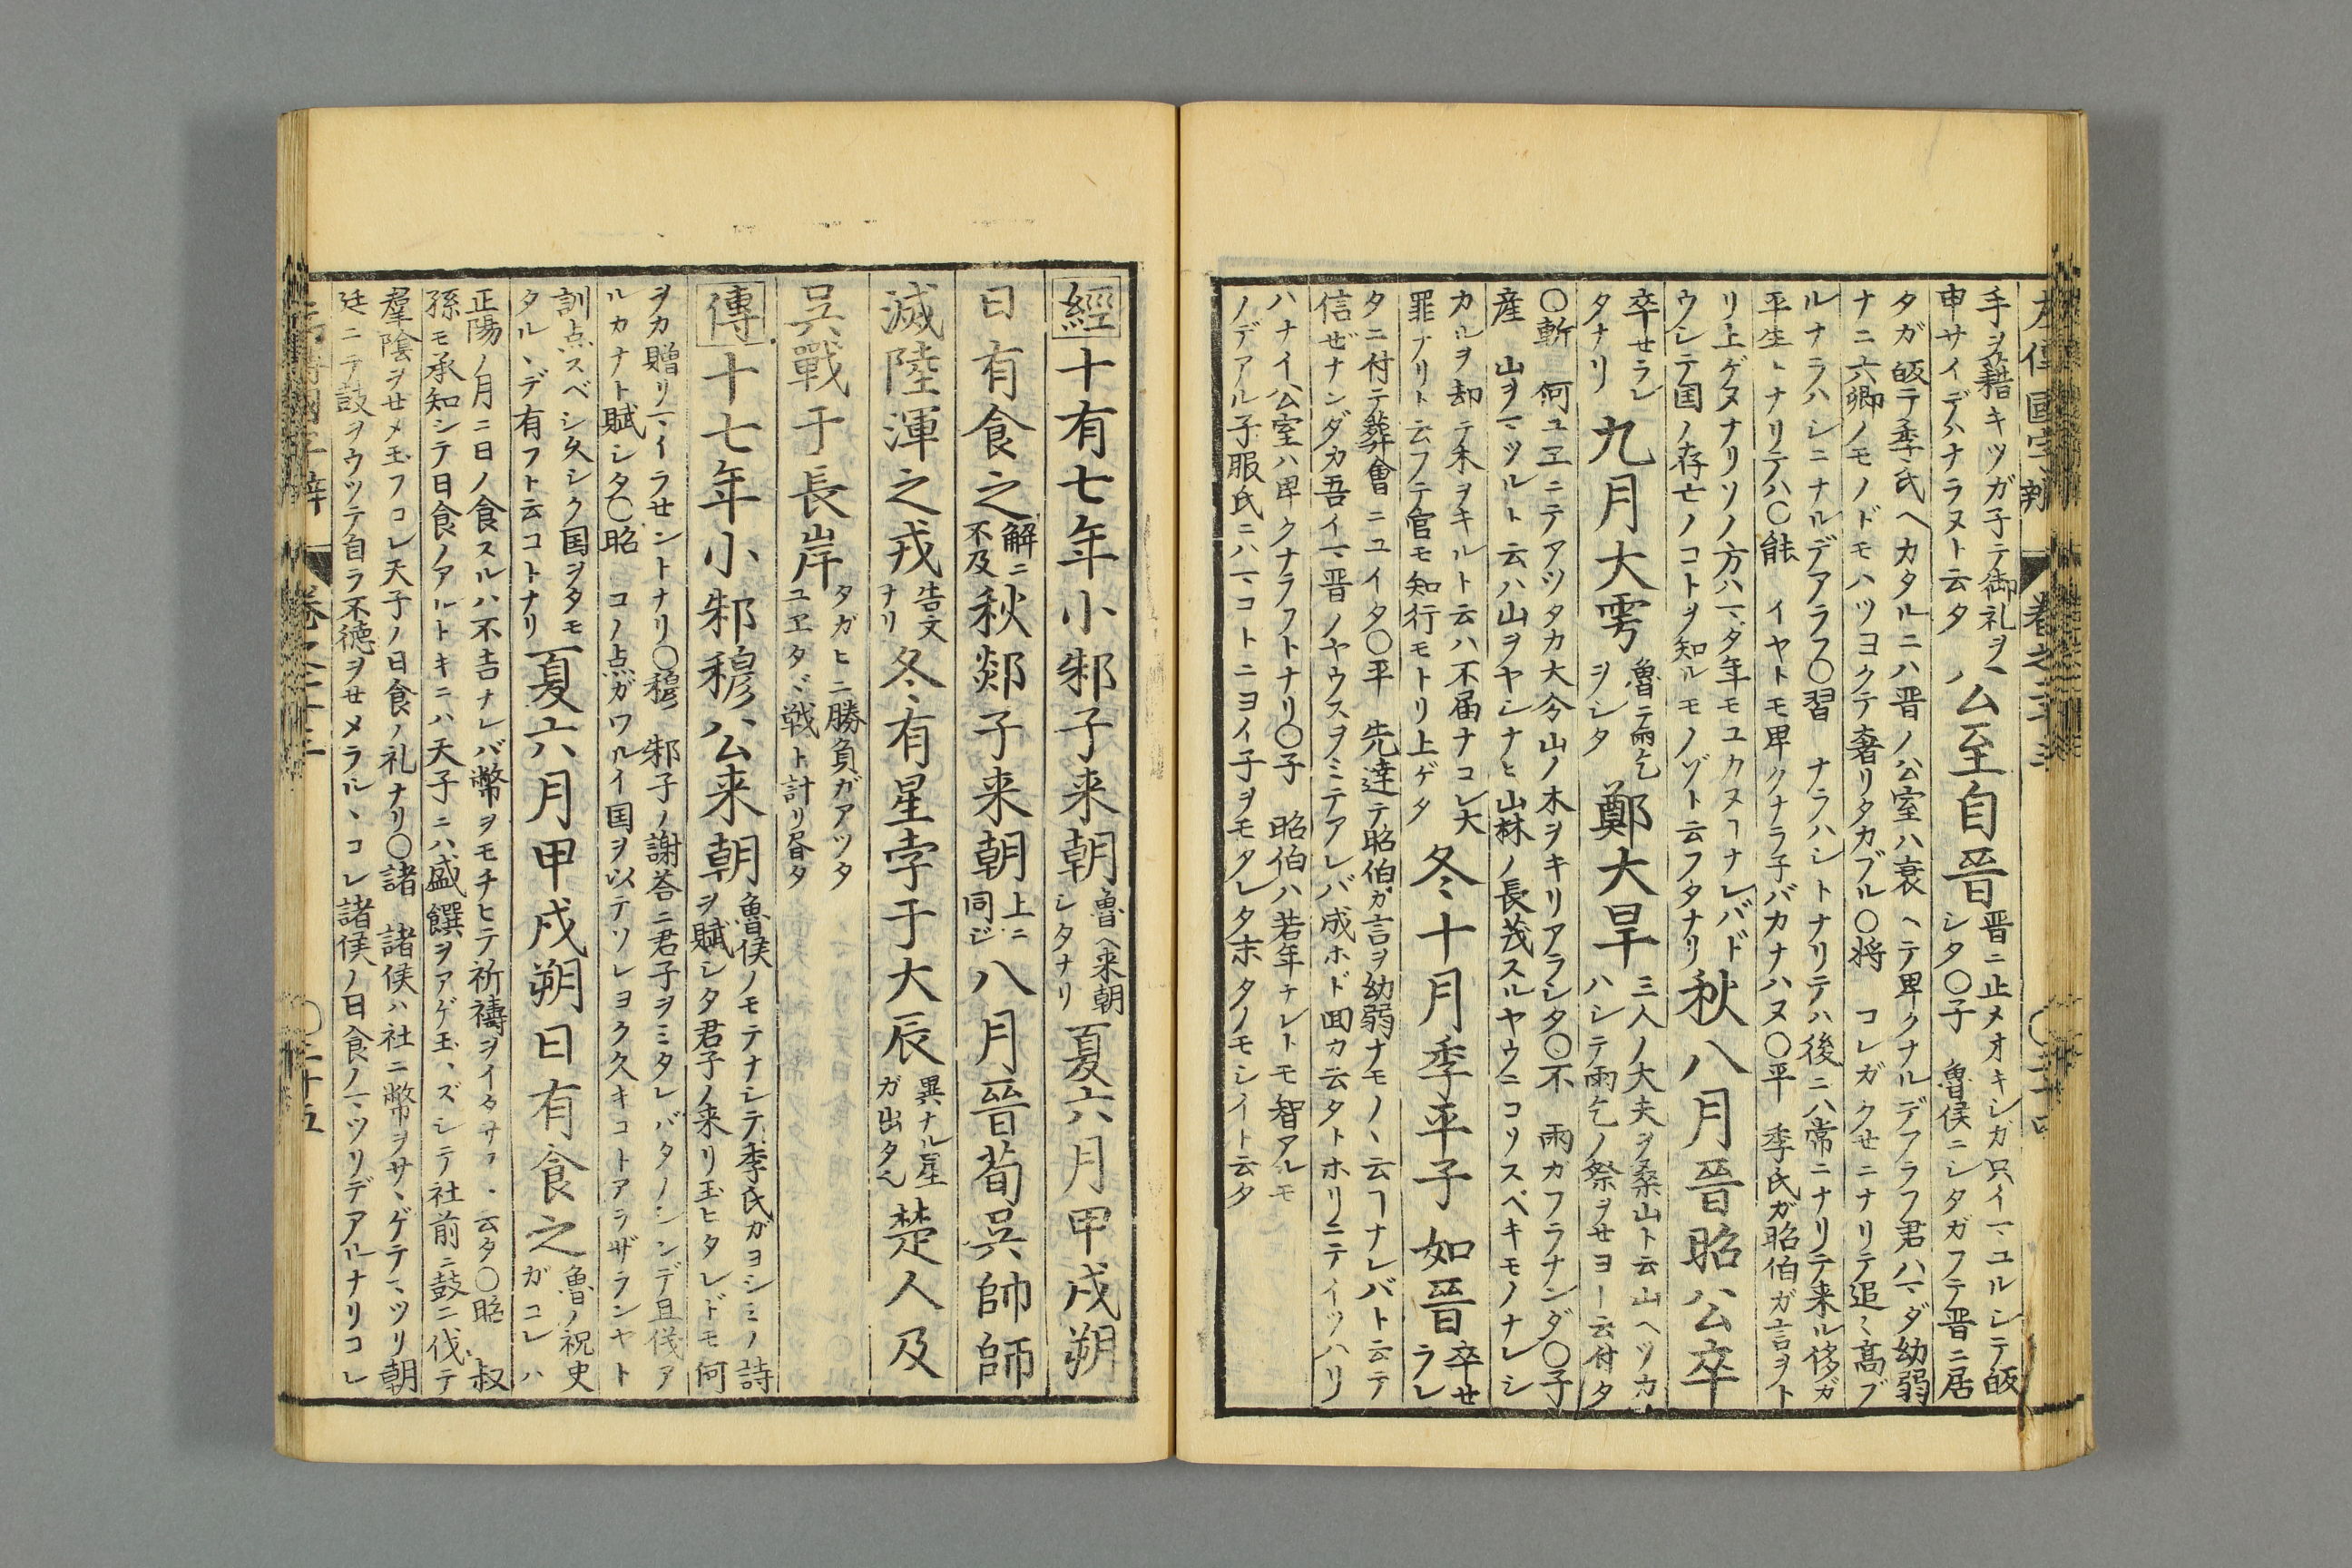 左傳國字辨 巻之二十三 ○二十四
手ヲ藉キツガ子テ御礼ヲ
申サイデハナラヌト云タ
公至自晉
晋ニ止メオキシガ只イマユルシテ皈
シタ○子 魯侯ニシタガフテ晋ニ居
タガ皈テ季氏ヘカタルニハ晋ノ公室ハ衰ヘテ卑クナルデアラフ君ハマダ幼弱
ナニ六卿ノモノドモハツヨクテ奢リタカブル○将 コレガクセニナリテ追〻高ブ
ルナラハシニナルデアラフ○習 ナラハシトナリテハ後ニハ常ニナリテ来ル侈ガ
平生〻ナリテハ○能 イヤトモ卑クナラ子バカナハヌ○平 季氏ガ昭伯ガ言ヲト
リ上ゲヌナリソノ方ハマダ年モユカヌヿナレバド
ウシテ国ノ存亡ノコトヲ知ルモノゾト云フタナリ
秋八月晉昭公卒
卒せラレ
タナリ
九月大雩
魯ニテ雨乞
ヲシタ
鄭大旱
三人ノ大夫ヲ桑山ト云山ヘツカ
ハシテ雨乞ノ祭ヲせヨト云付タ
○斬 何ユヱニテアツタカ大令山ノ木ヲキリアラシタ○不 雨ガフラナンダ○子
産 山ヲマツルト云ハ山ヲヤシナヒ山林ノ長茂スルヤウニコリスベキモノナレシ
カルヲ却テ木ヲキルト云ハ不届ナコレ大
罪ナリト云フテ官モ知行モトリ上ゲタ
冬十月季平子如晉
卒せ
ラレ
タニ付テ葬會ニユイタ○平 先達テ昭伯ガ言ヲ幼弱ナモノヽ云ヿナレバト云テ
信ぜナンダカ吾イマ晋ノヤウスヲミテアレバ成ホド囬カ云タトホリニテイツハリ
ハナイ公室ハ卑クナラフトナリ○子 昭伯ハ若年ナレトモ智アルモ
ノデアル子服氏ニハマコトニヨイ子ヲモタレタ末タノモシイト云タ
經十有七年小邾子来朝
魯ヘ来朝
シタナリ
夏六月甲戌朔
日有食之
解ニ
不及
秋郯子来朝
上ニ
同ジ
八月晉荀吳帥師
滅陸渾之戎
告文
ナリ
冬有星孛于大辰
異ナル星
ガ出タ
楚人及
吳戰于長岸
タガヒニ勝負ガアツタ
ユヱタヾ戦ト計リ昏タ
傳十七年小邾穆公来朝
魯侯ノモテナシテ季氏ガヨシミノ詩
ヲ賦シタ君子ノ来リ玉ヒタレドモ何
ヲカ贈リマイラせントナリ○穆 邾子ノ謝荅ニ君子ヲミタレバタノシンデ且儀ア
ルカナト賦シタ○昭 コノ点ガワルイ国ヲ以テソレヨク久キコトアラザランヤト
訓点スベシ久シク国ヲタモ
タルヽデ有フト云コトナリ
夏六月甲戌朔日有食之
魯ノ祝史
ガコレハ
正陽ノ月ニ日ノ食スルハ不吉ナレバ幣ヲモチヒテ祈禱ヲイタサフヽ云タ○昭 叔
孫モ承知シテ日食ノアルトキニハ天子ニハ盛饌ヲアゲ玉ヽズシテ社前ニ鼓ニ伐テ
羣陰ヲせメ玉フコレ天子ノ日食ノ礼ナリ○諸 諸侯ハ社ニ幣ヲサヽゲテマツリ朝
廷ニテ鼓ヲウツテ自ラ不徳ヲせメラルヽコレ諸侯ノ日食ノマツリデアルナリコレ
巻之二十三 ○二十五